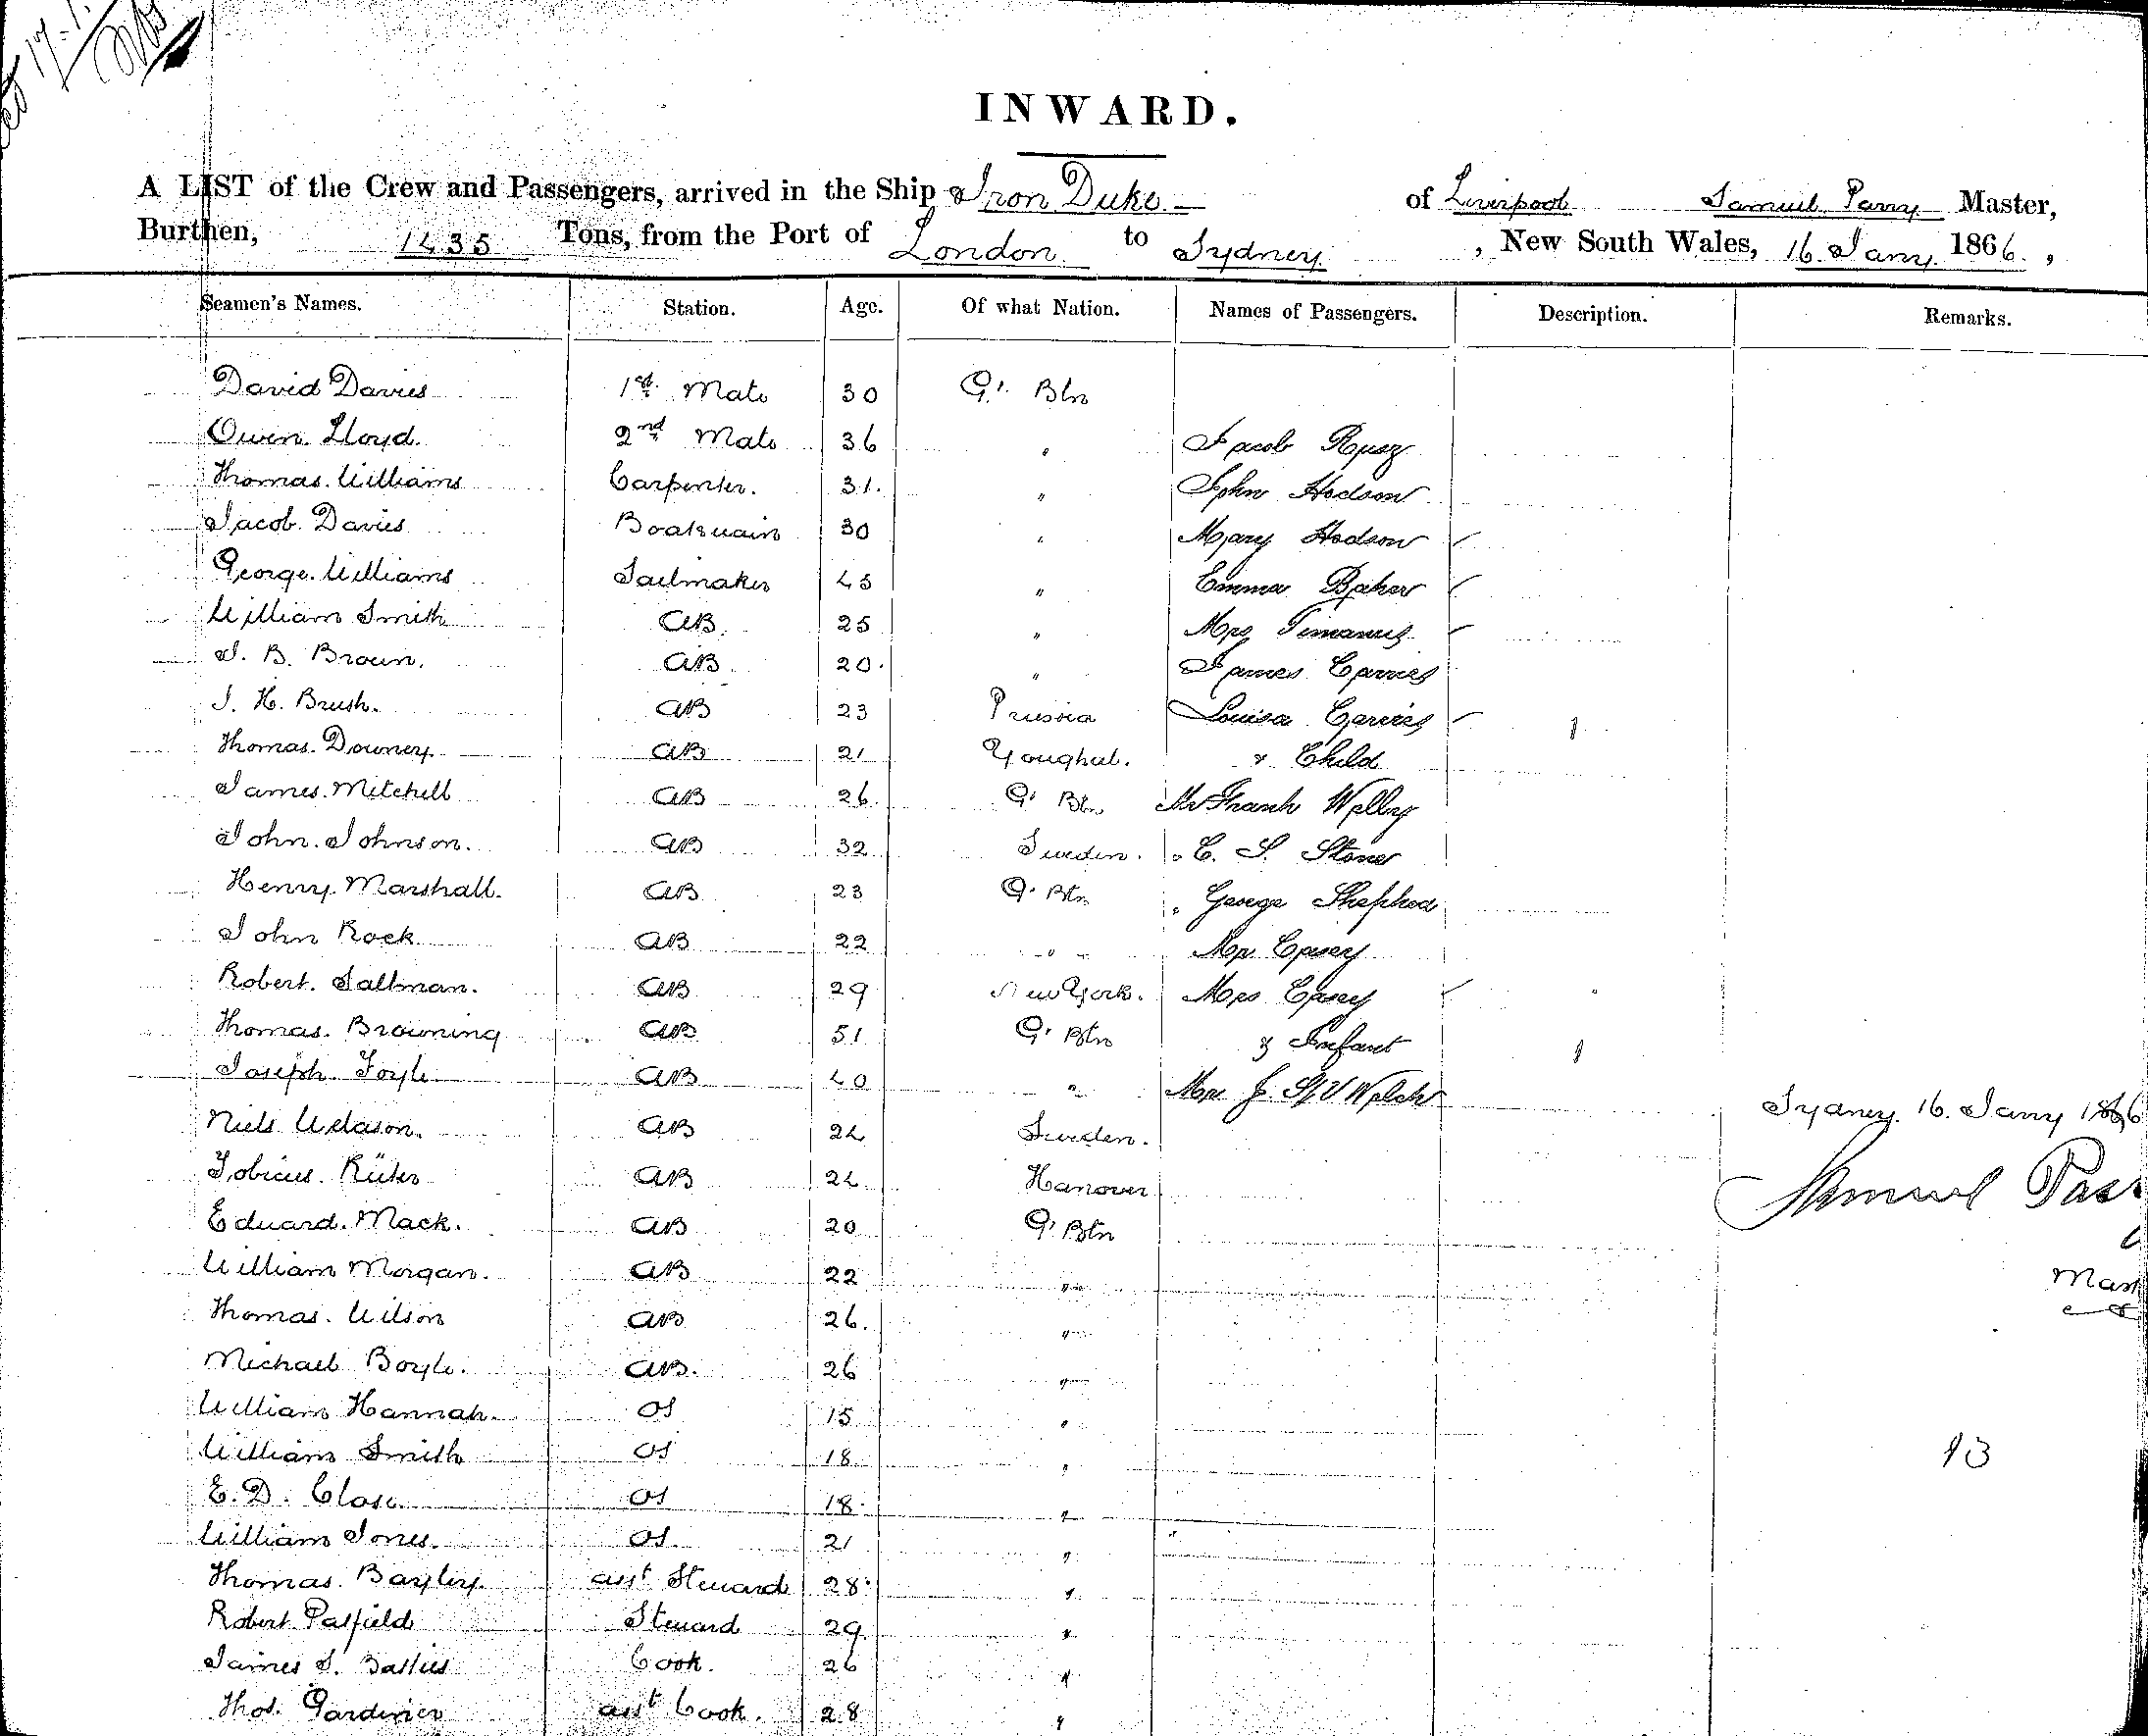 INWARD.
A LIST of the Crew and Passengers, arrived in the Ship Iron Duke of Liverpool Samuel Parry Master,
Burthen, 1435 Tons, from the Port of London to Sydney, New South Wales, 16 Jany 1866,
Seamen's Names. Station. Age. Of what Nation. Names of Passengers. Description. Remarks.
David Davies 1st Mate 30 Gt Btn
Owen Lloyd. 2nd Mate 36 " Jacob
Thomas Williams Carpenter. 31. " John Hodson
Jacob Davies Boatswain 30 " Mary Hodson
George Williams Sailmaker 45 " Emma Baker
William Smith AB. 25 " Mrs
J. B. Brown. AB 20. " James
J. H. Brush. AB 23 Prussia Louisa 1
Thomas Downey AB 21 Youghal. & Child
James Mitchell AB 26. Gt Btn Mr Frank
John Johnson. AB 32 Sweden. " C. S. Stoner
Henry Marshall. AB 23 Gt Btn " George
John Rock AB 22 " Mr Casey
Robert. Saltman. AB 29 New York. Mrs Casey
Thomas. Browning AB 51 Gt Btn & Infant 1
Joseph Foyle AB 40 " Mr J. Welch
Sydney. 16. Jany 1866
Niels AB 24 Sweden.
Tobias Rüter AB 24 Hanover
Samuel Parr
Edward. Mack. AB 20 Gt Btn
William Morgan. AB 22 "
Mast
Thomas. Wilson AB 26. "
Michael Boyle. AB. 26 "
William Hannah. OS 15 "
William Smith OS 18 " 13
E. D. Close OS 18 "
William Jones. OS. 21 "
Thomas. Bayley. asst Steward 28 "
Robert Patfield Steward 29 "
James S. Cook. 26 "
Thos. Gardiner asst Cook. 28 "